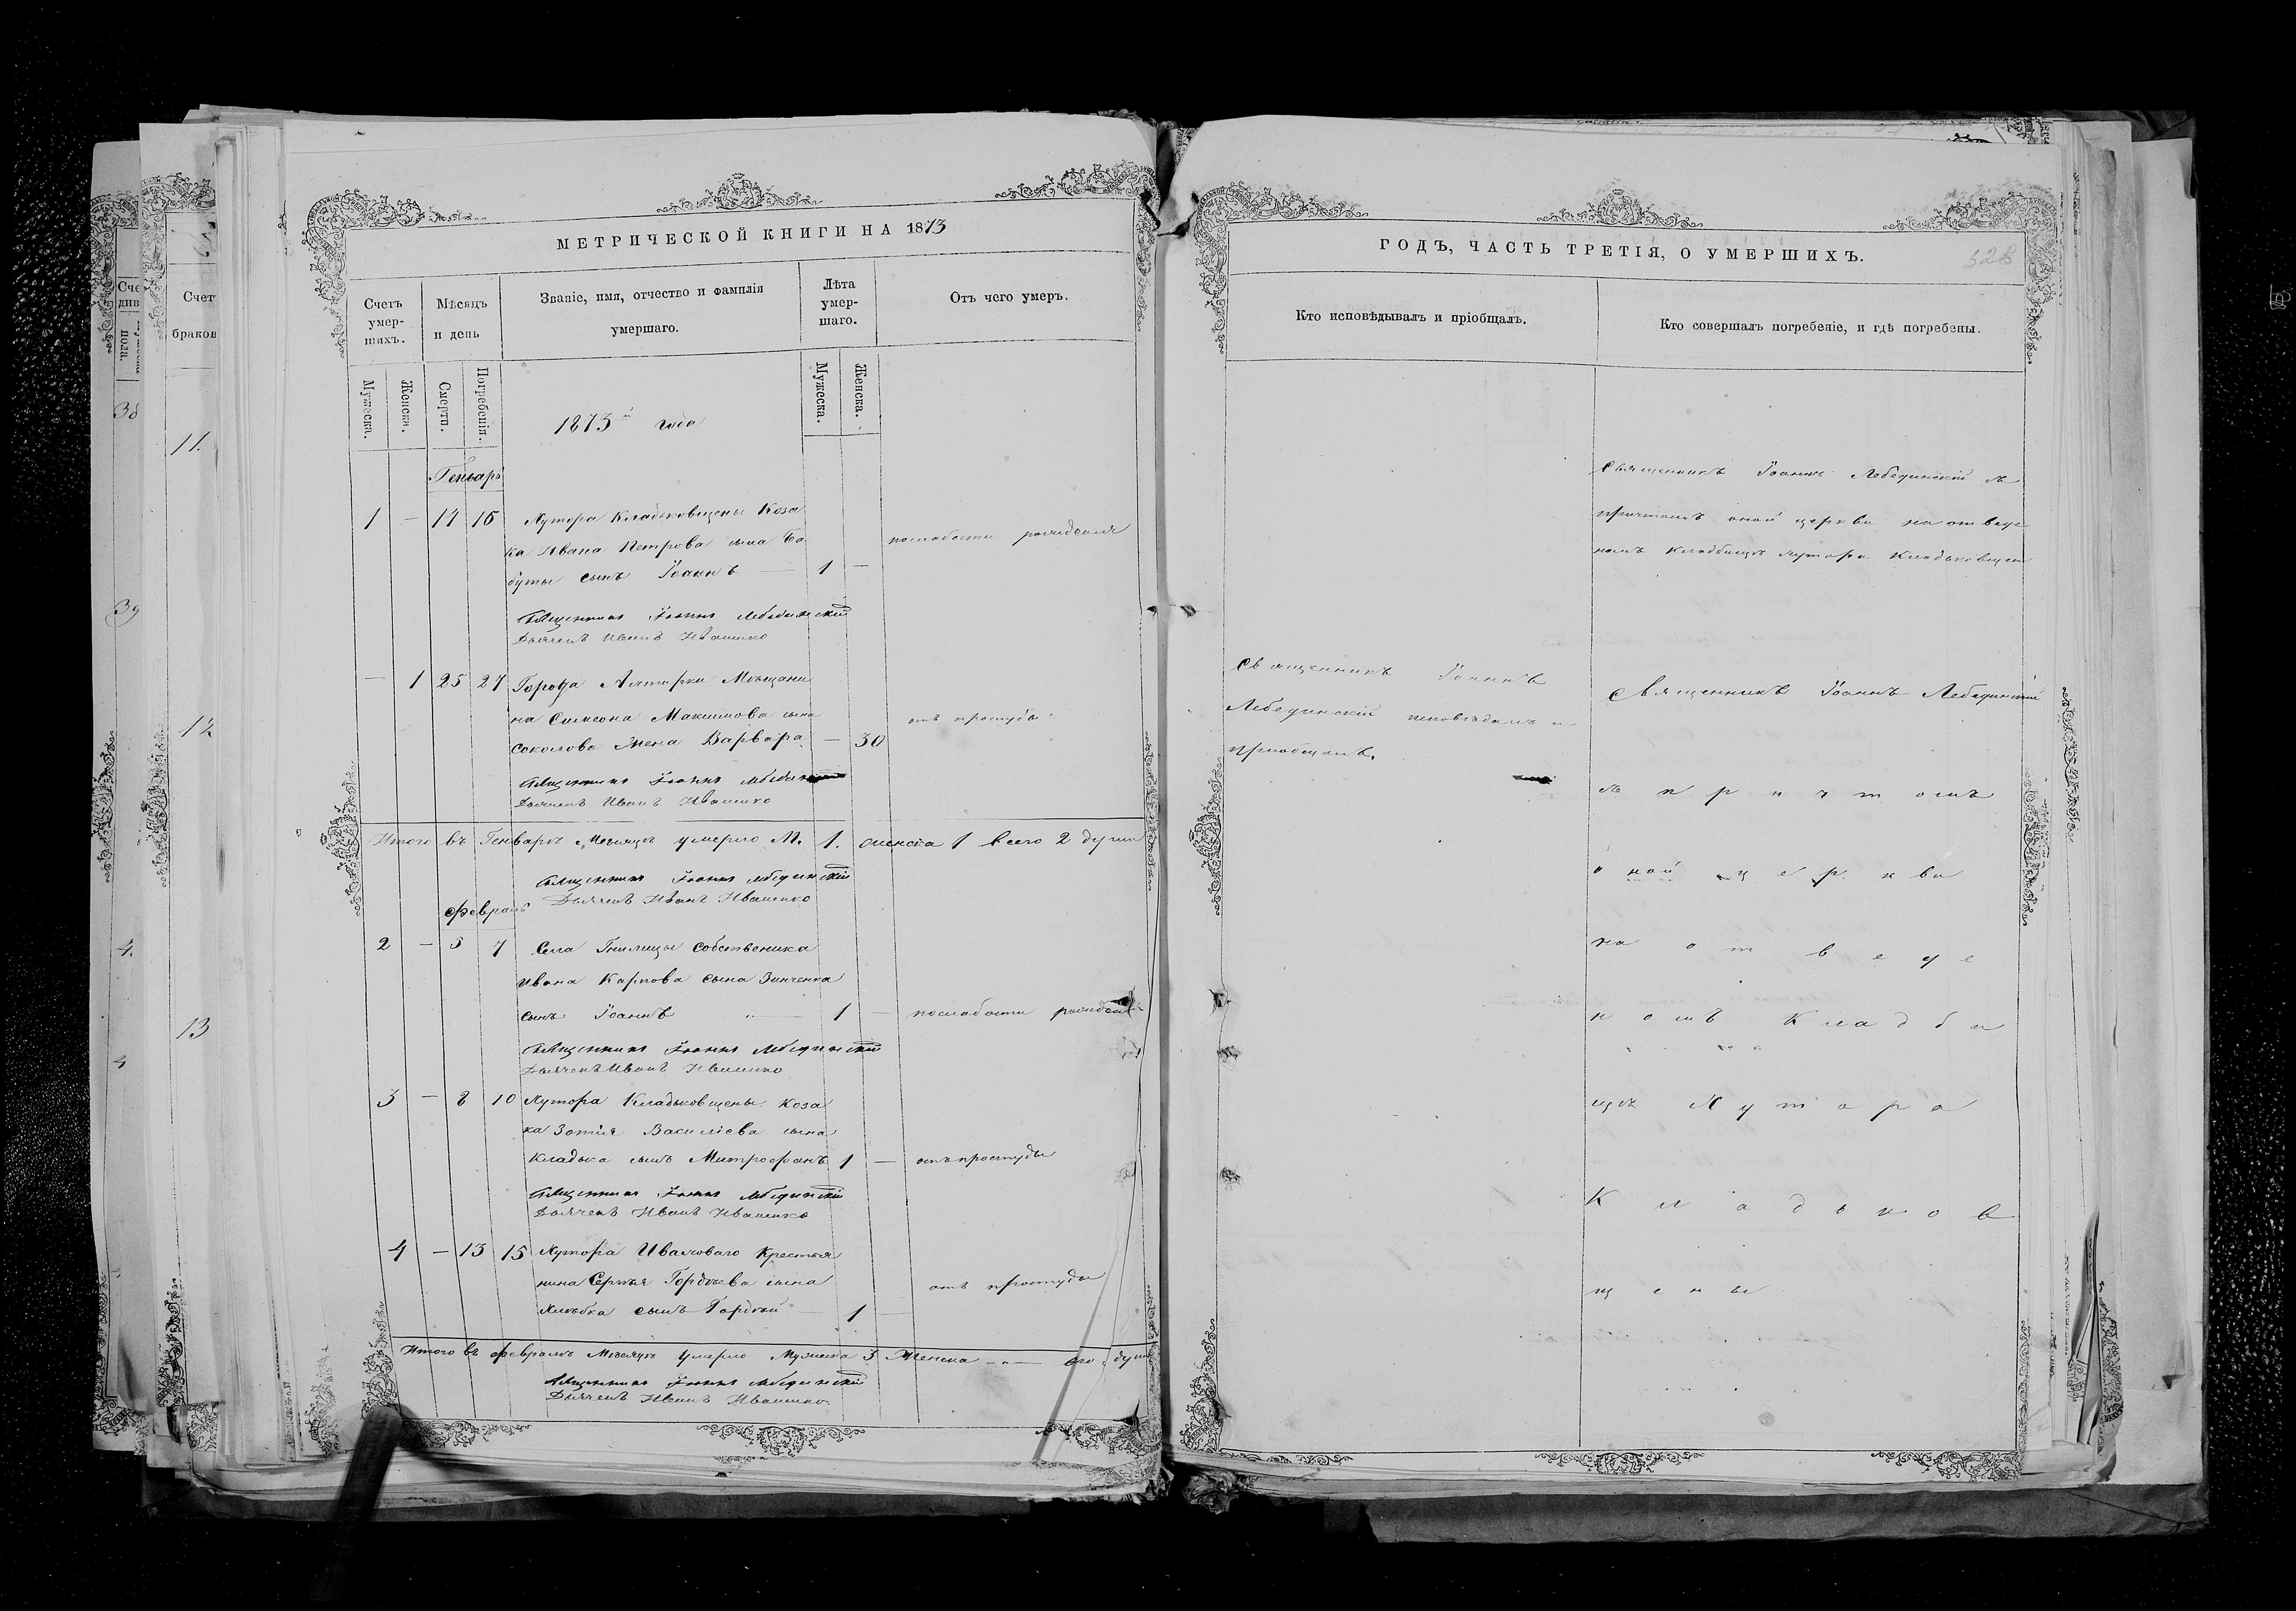 МЕТРИЧЕСКОЙ КНИГИ НА 1873
Счетъ умершихъ.
Мѣсяцъ и день
Званіе, имя, отчество и фамилія умершаго.
Лѣта умершаго.
Отъ чего умеръ.
Мужеска.
Женска.
Смерти.
Погребенія.
Мужеска.
Женска.
1873 года
Генварь
1 — 14 16 Хутора Кладьковщены Коза
ка Ивана Петрова сына Ба
буты сынъ Іоаннъ — 1 —
послабости рожденія
Священникъ Іоаннъ Лебединскій
Дьячекъ Иванъ Ивашко
— 1 25 27 Города Ахтирки Мѣщани
на Симеона Максимова сына
Соколова Жена Варвара — 30
отъ простуды
Священникъ Іоаннъ
Дьячекъ Иванъ Ивашко
Итого въ Генварѣ Месяцѣ умерло М. 1. женска 1 всего 2 души
Священникъ Іоаннъ Лебединскій
Дьячекъ Иванъ Ивашко
Февраль
2 — 5 7 Села Гнилицы Собственика
Ивана Карпова сына Зинченка
сынъ Іоаннъ — 1 — послабости рожденія
Священникъ Іоаннъ Лебединскій
Дьячекъ Иванъ Ивашко
3 — 8 10 Хутора Кладьковщены Коза
ка Зотія Василіева сына
Кладька сынъ Митрофанъ 1 — отъ простуды
Священникъ Іоаннъ Лебединскій
Дьячекъ Иванъ Ивашко
4 — 13 15 Хутора Крестья
нина Сергѣя Гордѣева сына
Хлѣбка сынъ Гордѣй — 1 —
отъ простуды
Итого въ Февралѣ Месяцѣ умерло Мужеска 3 Женска —
Священникъ Іоаннъ Лебединскій
Дьячекъ Иванъ Ивашко
ГОДЪ, ЧАСТЬ ТРЕТІЯ, О УМЕРШИХЪ.
528
Кто исповѣдывалъ и пріобщалъ.
Кто совершалъ погребеніе, и гдѣ погребены.
Священникъ Іоаннъ Лебединскій съ
причтомъ оной церкви на отведе
номъ кладбищѣ хутора Кладьковщен
Священникъ Іоаннъ
Лебединскій исповѣдалъ и
пріобщалъ.
Священникъ Іоаннъ Лебединскій
съ причтомъ
оной церкви
на отведе
номъ Кладби
щѣ Хутора
Кладьков
щены
Счет
браков
11.
12
13
38
39
4.